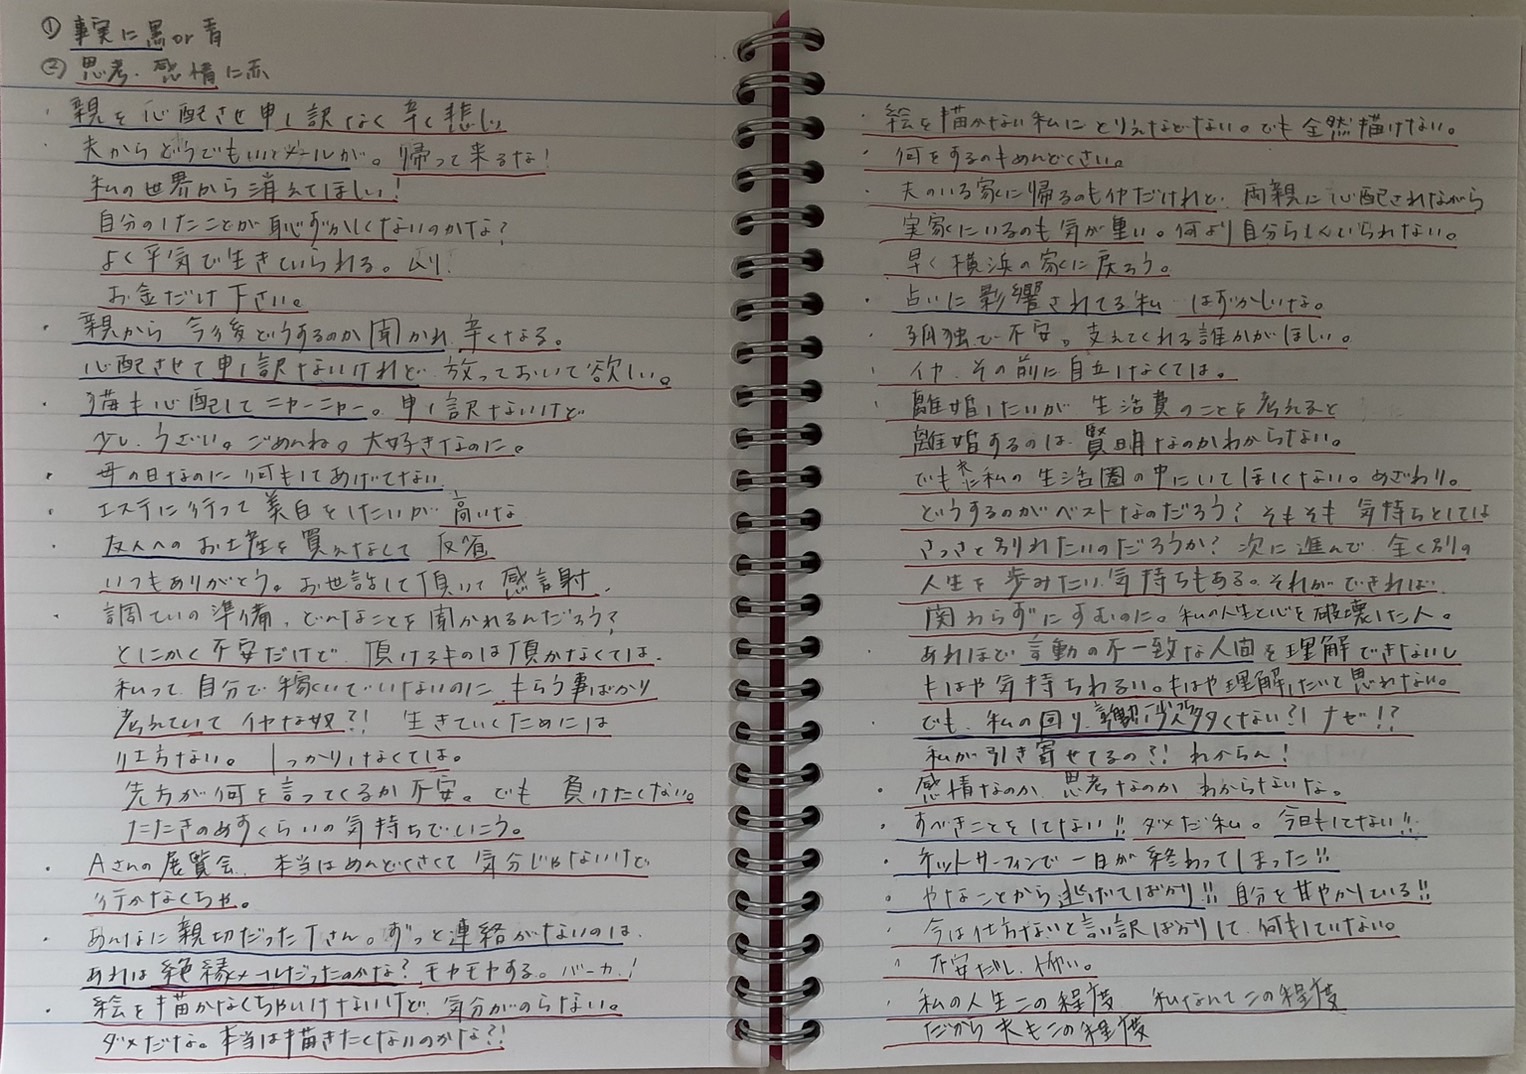 ① 事実に黒or青
② 思考、感情に赤
・親を心配させ申し訳なく辛く悲しい
・夫からどうでもいいメールが。帰って来るな！
私の世界から消えてほしい！
自分のしたことが恥ずかしくないのかな？
よく平気で生きていられる。ムリ！
お金だけ下さい。
・親から今後どうするのか聞かれ、辛くなる。
心配させて申し訳ないけれど、放っておいて欲しい。
・猫も心配してニャーニャー。申し訳ないけど
少し、うざい。ごめんね。大好きなのに。
・母の日なのに何もしてあげてない。
・エステに行って美白をしたいが高いな
・友人へのお土産を買えなくて 反省
いつもありがとう。お世話して頂いて感謝。
・調ていの準備、どんなことを聞かれるんだろう？
とにかく不安だけど、頂けるものは頂かなくては。
私って、自分で稼いでいないのにもらう事ばかり
考えていてイヤな奴？！ 生きていくためには
仕方ない。しっかりしなくては。
先方が何を言ってくるか不安。でも負けたくない。
たたきのめすくらいの気持ちでいこう。
・Aさんの展覧会、本当はめんどくさくて気分じゃないけど
行かなくちゃ。
・あんなに親切だったTさん。ずっと連絡がないのは、
あれは絶縁メールだったのかな？モヤモヤする。バーカ！
・絵を描かなくちゃいけないけど、気分がのらない。
ダメだな。本当は描きたくないのかな？！
・絵を描かない私にとりえなどない。でも全然描けない。
・何をするのもめんどくさい。
・夫のいる家に帰るのもイヤだけれど、両親に心配されながら
実家にいるのも気が重い。何より自分らしくいられない。
早く横浜の家に戻ろう。
・占いに影響されてる私 はずかしいな。
・孤独で不安。支えてくれる誰かがほしい。
・イヤ、その前に自立しなくては。
・離婚したいが生活費のことを考えると
離婚するのは賢明なのかわからない。
でも夫に私の生活圏の中にいてほしくない。めざわり。
どうするのがベストなのだろう？そもそも気持ちとしては
さっさと別れたいのだろうか？次に進んで、全く別の
人生を歩みたい気持ちもある。それができれば
関わらずにすむのに。私の人生と心を破壊した人。
あれほど言動の不一致な人間を理解できないし
もはや気持ちわるい。もはや理解したいと思れない。
でも、私の回り、人多くない？！ナゼ！？
私が引き寄せてるの？！わからん！
・感情なのか、思考なのかわからないな。
・すべきことをしてない！！ダメだ私。今日もしてない！！
・ネットサーフィンで一日が終わってしまった！！
・やなことから逃げてばかり！！自分を甘やかしている！！
・今は仕方ないと言い訳ばかりして、何もしていない。
・不安だし、怖い。
・私の人生この程度 私なんてこの程度
だから夫もこの程度